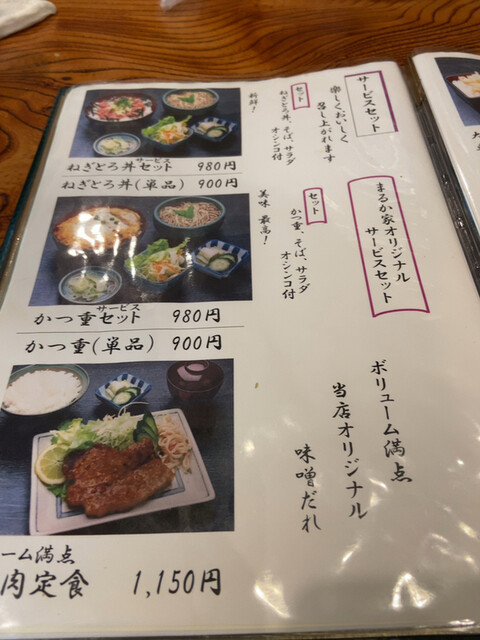 サービスセット
楽しく、おいしく
召し上がれます
セット
ねぎとろ丼、そば、サラダ
オシンコ付
新鮮!
サービス
ねぎとろ丼セット 980円
ねぎとろ丼(単品) 900円
まるか家オリジナル
サービスセット
セット
かつ重、そば、サラダ
オシンコ付
美味 最高!
サービス
かつ重セット 980円
かつ重(単品) 900円
ボリューム満点
当店オリジナル
味噌だれ
ーム満点
肉定食 1,150円